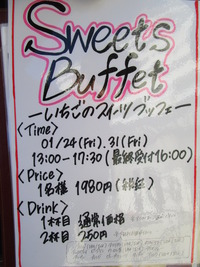 Sweets
Buffet
ーいちごのスイーツブッフェー
<Time>
01/24(Fri).31(Fri)
13:00-17:30(最終受付16:00)
<Price>
1名様 1980円(税込)
<Drink>
1杯目 通常価格
2杯目 250円